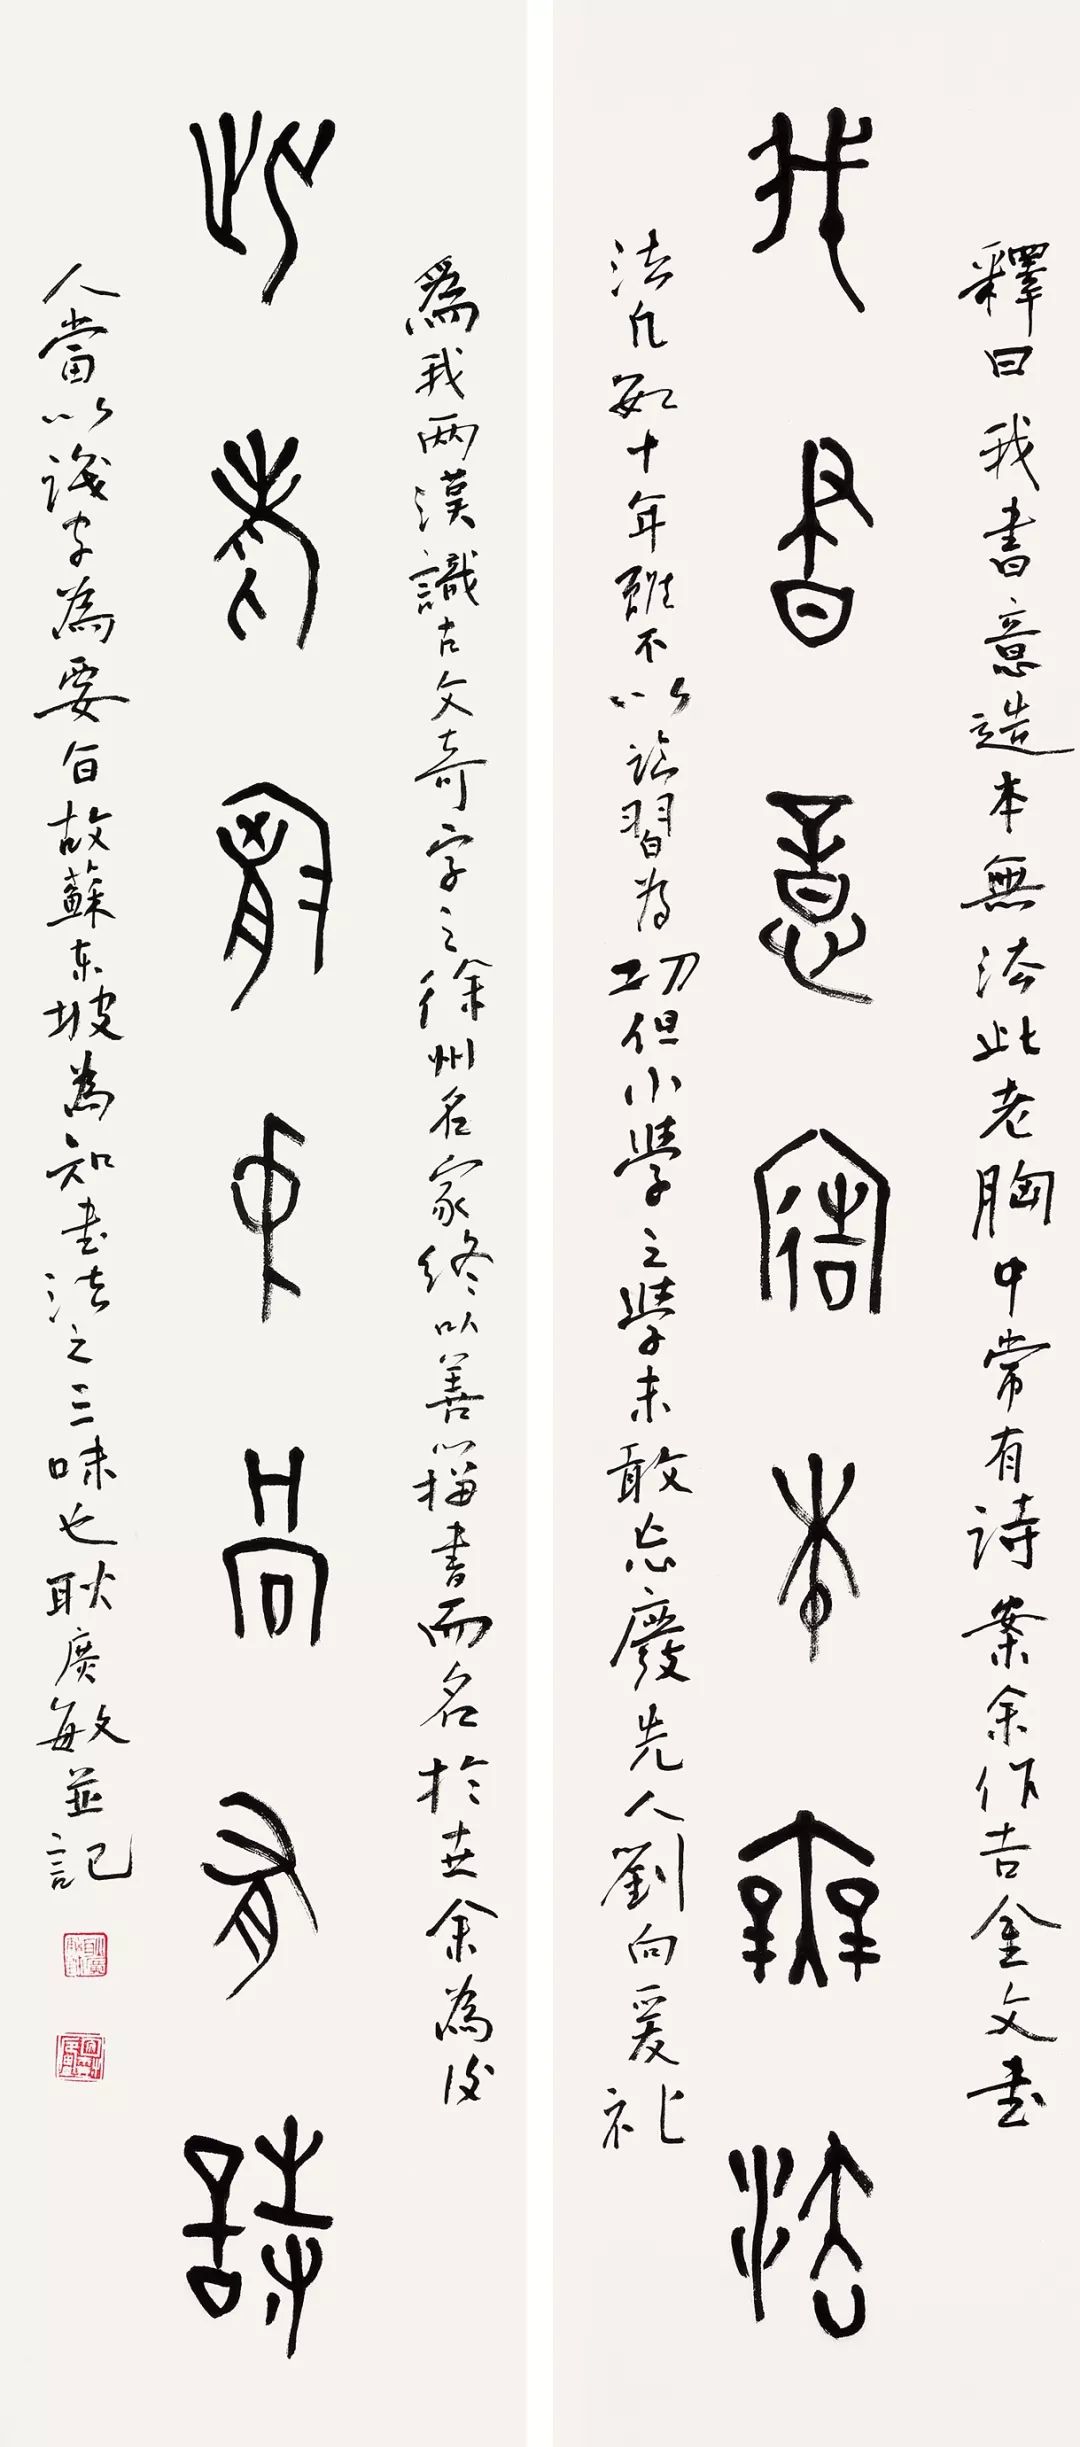 釋曰我書意造本無法此老胸中常有詩案余作吉金文书
我書意造本無法
法凡数十年雖不以临習为功但小學之學未敢忘廢先人劉向爰祉
爲我两漢識古文奇字之徐州名家终以善籀書而名於世余為後
此老胸中尚有詩
人當以識字為要旨故蘇东坡為知书法之三昧也耿廣敏並記